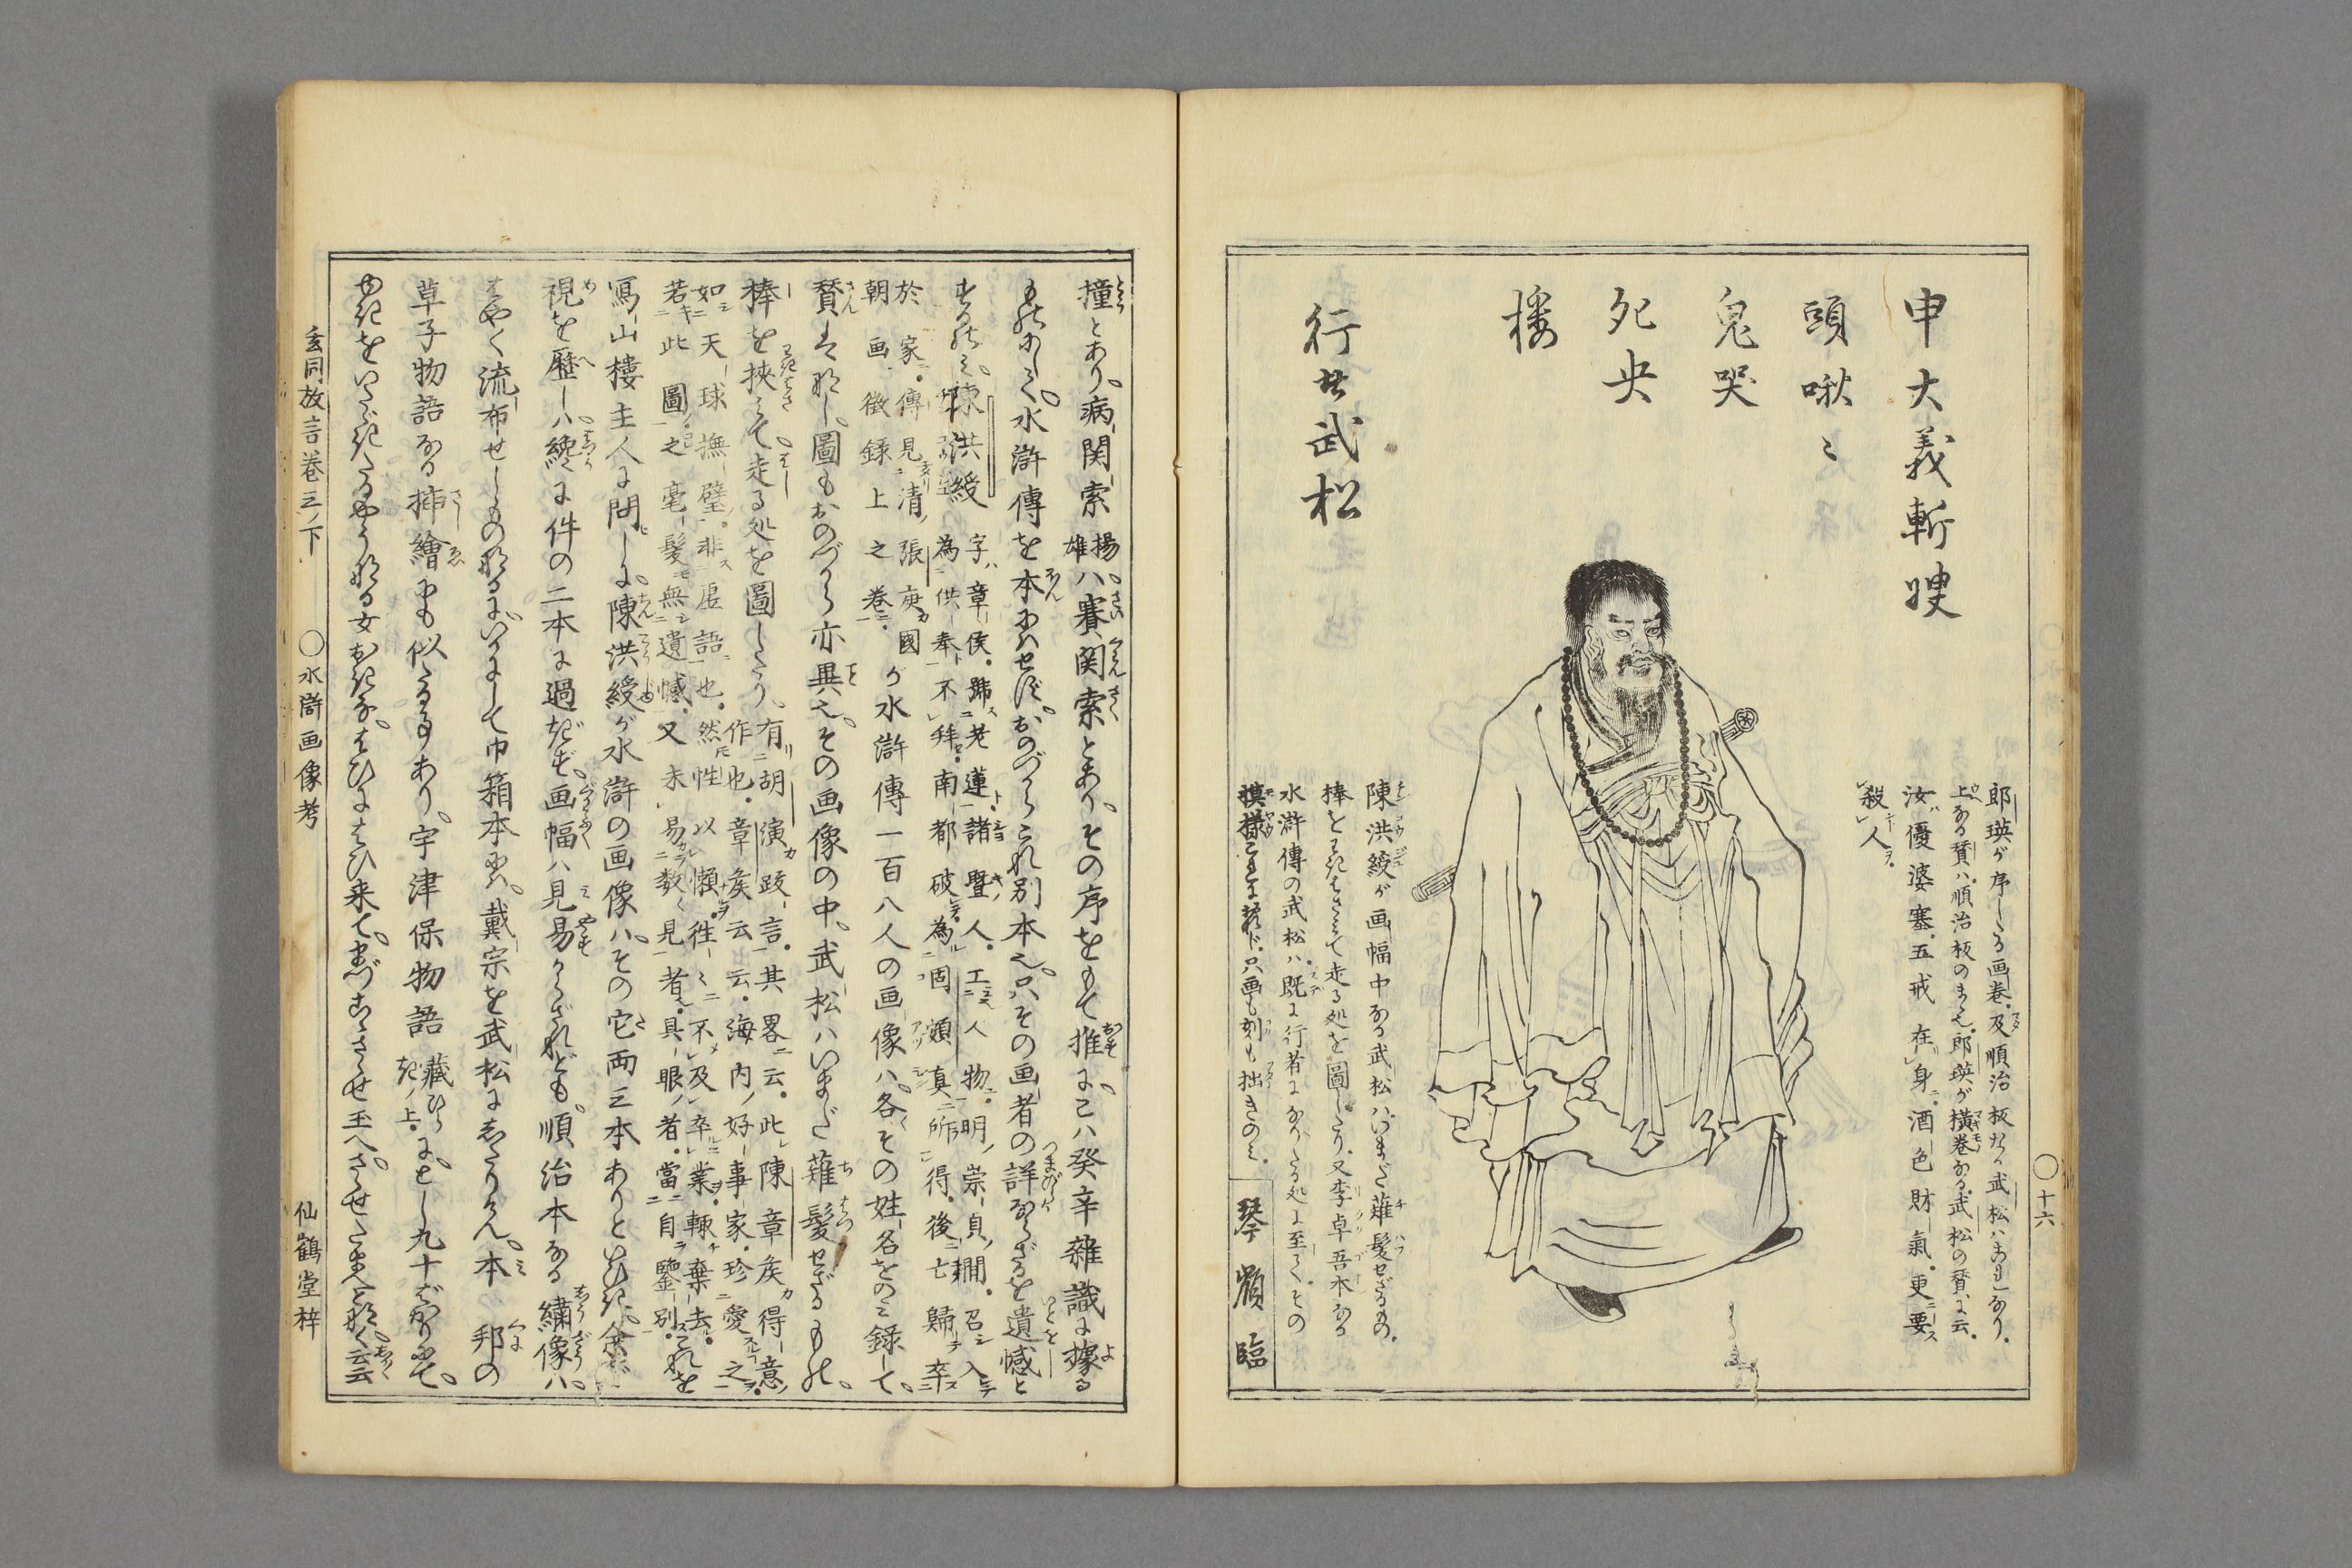 十六
郎瑛が序したる画巻。及順治板なる武松ハあれ也なり。
上なる賛ハ。順治板のまゝ也。郎瑛が横巻なる。武松の賛に云。
汝優婆塞。五戒在身。酒色財氣。更要
殺人。
申大義斬嫂
頭啾々
鬼哭
死央
楼
行者武松
陳洪綬が画幅中なる武松ハいまだ薙髪せざるもの。
棒をわきはさみて走る処を圖したり。又李卓吾本なる
水滸傳の武松ハ。既に行者になりたる処に至りて。その
模様これに拠ド。只画も刻も拙きのミ。
琴嶺臨
撞とあり、病関索楊雄ハ、賽関索とあり、その序をもて推に、こハ癸辛雜識に據る
ものにして、水滸傳を本にハせず、おのづからこれ別本也、只その画者の詳ならざるを遺憾と
するのミ、陳洪綬字ハ章侯。號老蓮。諸曁人。工人物。明ノ崇貞ノ間。召入
為供奉不拜。南都破。為固顛真所得。後亡歸卒
於家。傳見清ノ張庚國
朝画徴録上之巻。が水滸傳一百八人の画像ハ、各その姓名をのミ録して、
賛ハなし、圖もおのづから亦異也、その画像の中、武松ハいまだ薙髪せざるもの、
棒を挾みて、走る処を圖したり、有胡演跋言。其畧云。此陳章矦得意
作也。章矦云云。海内ノ好事家。珍愛之。
如天球撫璧。非虚語也。然性以懶。往々不及卒業。輙棄去。
若此圖之毫髮無遺憾。又未易數見者。具眼ノ者。當自鑒別。これを
寫山樓主人に問しに、陳洪綬が水滸の画像ハ、その它両三本ありといひき、余が
視を歴しハ、纔に件の二本に過ぎず、画幅ハ見易からざれども、順治本なる繍像ハ、
はやく流布せしものなるに、いかにして巾箱本にハ、戴宗を武松にあたりけん、本邦の
草子物語なる挿繪にも似たる事あり、宇津保物語藏ひらきノ上。に、とし九十ばかりにて、
ゆきをいたゞきたるやうなる女おきな、はひにはひ来て、まづあらせ玉へ、させたまへとなく云云
玄同放言巻三ノ下　○水滸画像考　仙鶴堂梓